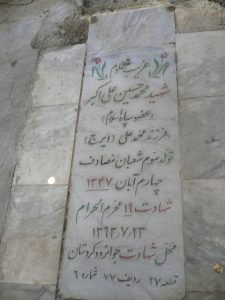 غریب مظلوم
شهید محمد حسین علی اکبر
(عضو سپاه اسلام)
فرزند محمد علی (ایرج)
تولد سوم شعبان مصادف
چهارم آبان ۱۳۴۷
شهادت ۱۹ محرم الحرام
۱۳۶۲٫۷٫۲۳
محل شهادت جوانرود کردستان
قطعه ۲۷ ردیف ۷۷ شماره ۶